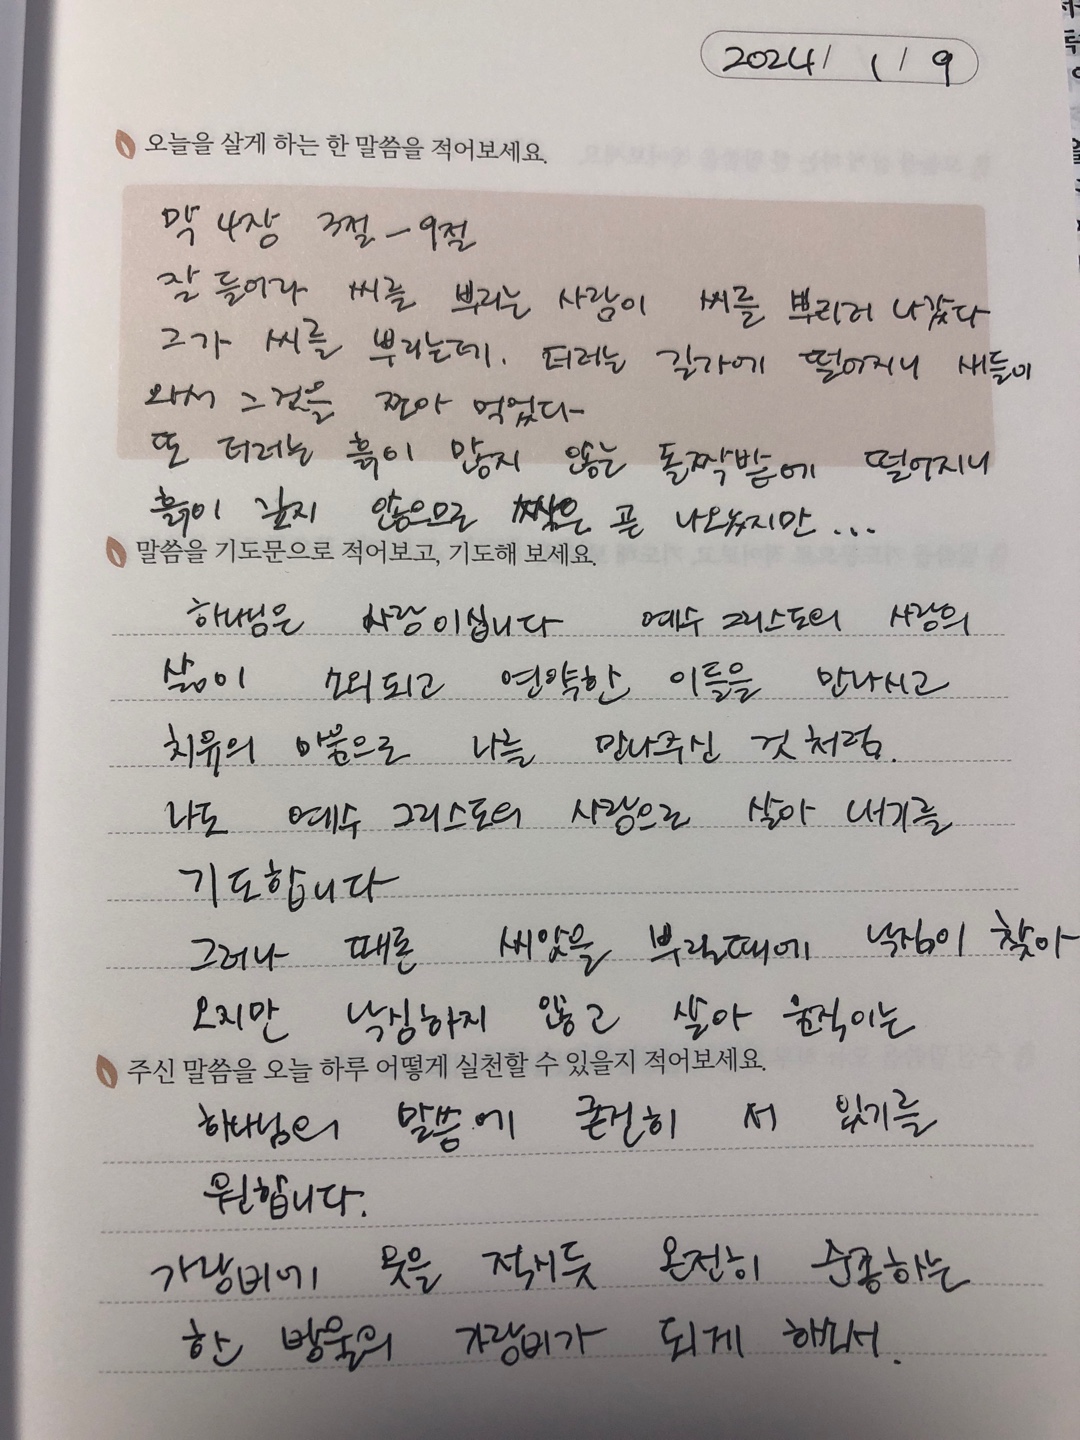 2024/ 1/ 9
오늘을 살게 하는 한 말씀을 적어보세요.
막 4장 3절 - 9절
잘 들어라 씨를 뿌리는 사람이 씨를 뿌리러 나갔다
그가 씨를 뿌리는데. 더러는 길가에 떨어지니 새들이
와서 그것을 쪼아 먹었다
또 더러는 흙이 많지 않는 돌짝밭에 떨어지니
흙이 깊지 않으므로 싹은 곧 나오지만...
말씀을 기도문으로 적어보고, 기도해 보세요.
하나님은 사랑이십니다 예수 그리스도의 사랑의
삶이 소외되고 연약한 이들을 만나시고
치유의 마음으로 나를 만나주신 것 처럼.
나도 예수 그리스도의 사랑으로 살아 내기를
기도합니다
그러나 때론 씨앗을 뿌릴때에 낙심이 찾아
오지만 낙심하지 않고 살아 움직이는
주신 말씀을 오늘 하루 어떻게 실천할 수 있을지 적어보세요.
하나님의 말씀에 온전히 서 있기를
원합니다.
가랑비에 옷을 적시듯 온전히 순종하는
한 방울의 가랑비가 되게 하소서.